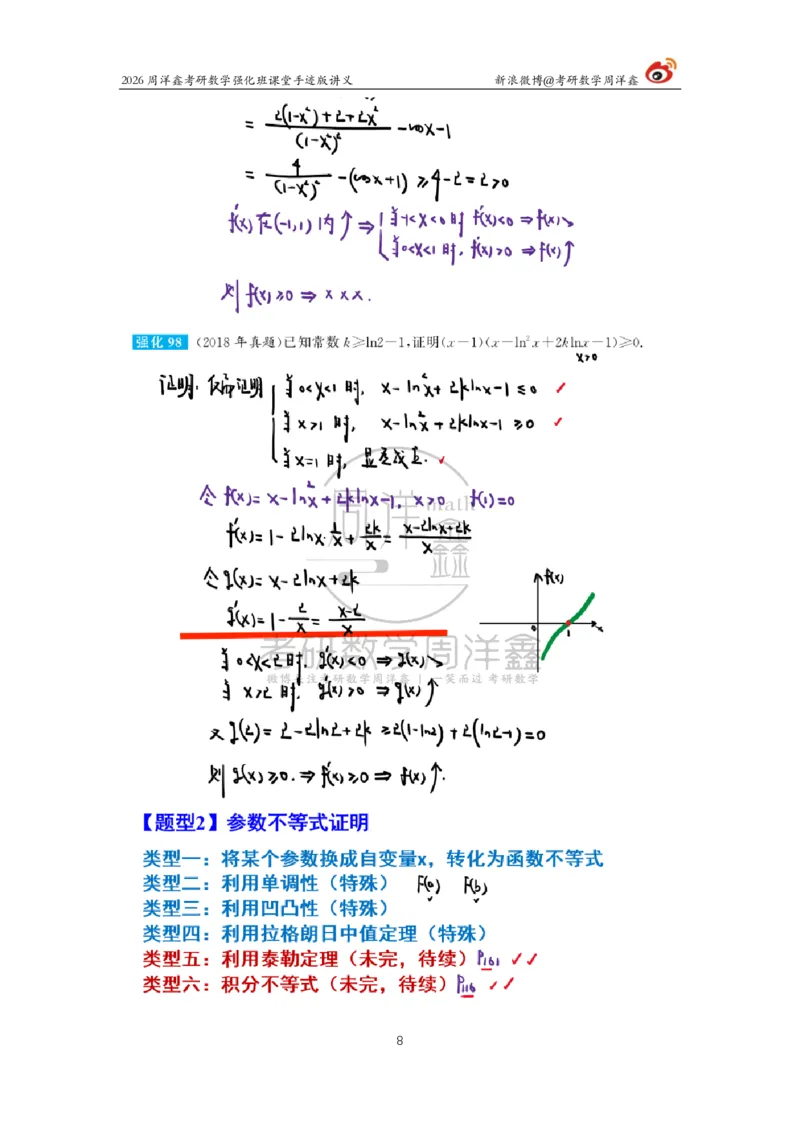 2026 周洋鑫考研数学强化班课堂手迹版讲义 新浪微博@考研数学周洋鑫
= (2(1-x²)+2+2x²)/(1-x²)² - cosx-1
= 4/(1-x²)² -(cosx+1) ≥4-2=2>0
f'(x)在(-1,1)内↑⇒{当-1<x<0时 f'(x)<0 ⇒f(x)↘
当0<x<1时, f'(x)>0 ⇒f(x)↑
则f(x)≥0 ⇒ x x x .
强化 98 (2018 年真题)已知常数 k≥ln2-1,证明(x-1)(x-ln²x+2klnx-1)≥0.
x>0
证明: 仅需证明{当0<x<1时, x-ln²x+2klnx-1≤0 ✓
当x>1时, x-ln²x+2klnx-1≥0 ✓
当x=1时, 显然成立. ✓
令f(x)=x-ln²x+2klnx-1, x>0 f(1)=0
f'(x)=1-2lnx·1/x+2k/x=(x-2lnx+2k)/x
令g(x)=x-2lnx+2k
f(x)
g'(x)=1-2/x=(x-2)/x
0 1 x
当0<x<2时, g'(x)<0 ⇒g(x)↘
当x>2时, g'(x)>0 ⇒g(x)↑
又g(2)=2-2ln2+2k≥2(1-ln2)+2(ln2-1)=0
则g(x)≥0.⇒f'(x)≥0⇒f(x)↑.
周洋鑫 math
考研数学周洋鑫
微博关注考研数学周洋鑫 | 一笑而过 考研数学
【题型2】参数不等式证明
类型一：将某个参数换成自变量x，转化为函数不等式
类型二：利用单调性（特殊） F(a) F(b)
类型三：利用凹凸性（特殊）
类型四：利用拉格朗日中值定理（特殊）
类型五：利用泰勒定理（未完，待续）P161 ✓✓
类型六：积分不等式（未完，待续）P116 ✓✓
8